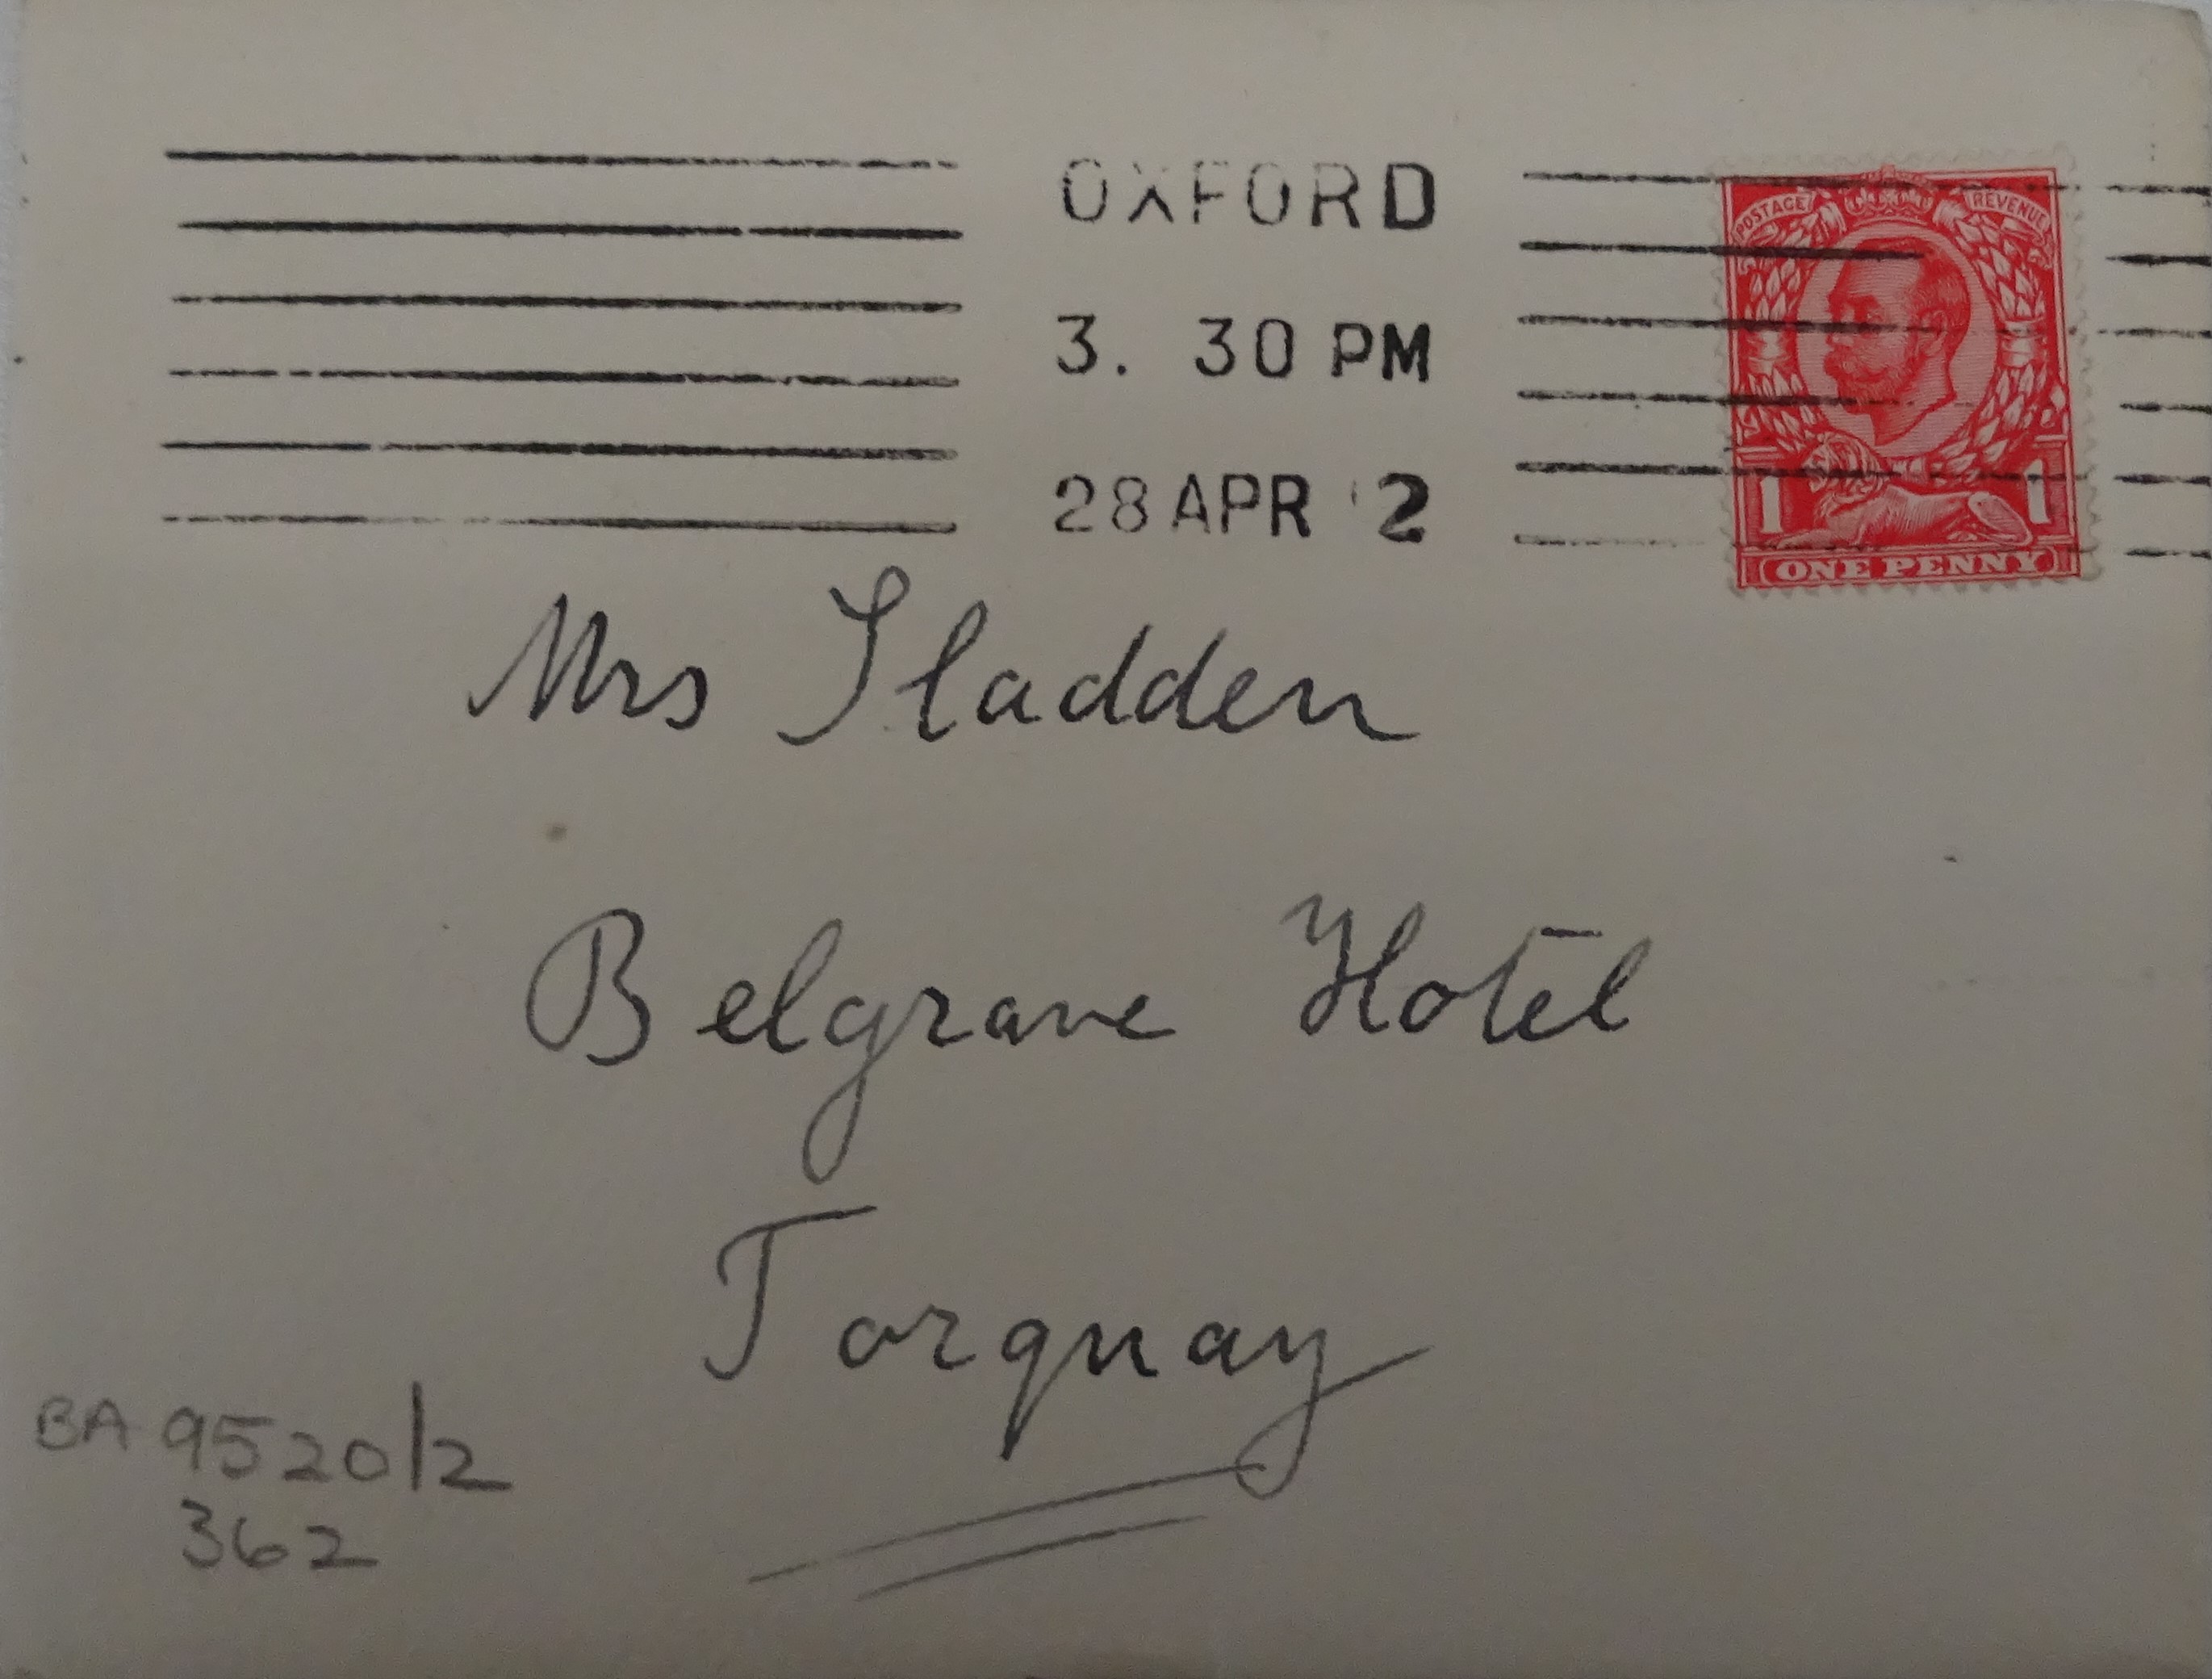 OXFORD
3. 30 PM
28 APR 2
POSTAGE REVENUE
1 1
ONE PENNY
Mrs Sladden
Belgrave Hotel
Torquay
BA 9520/2
362